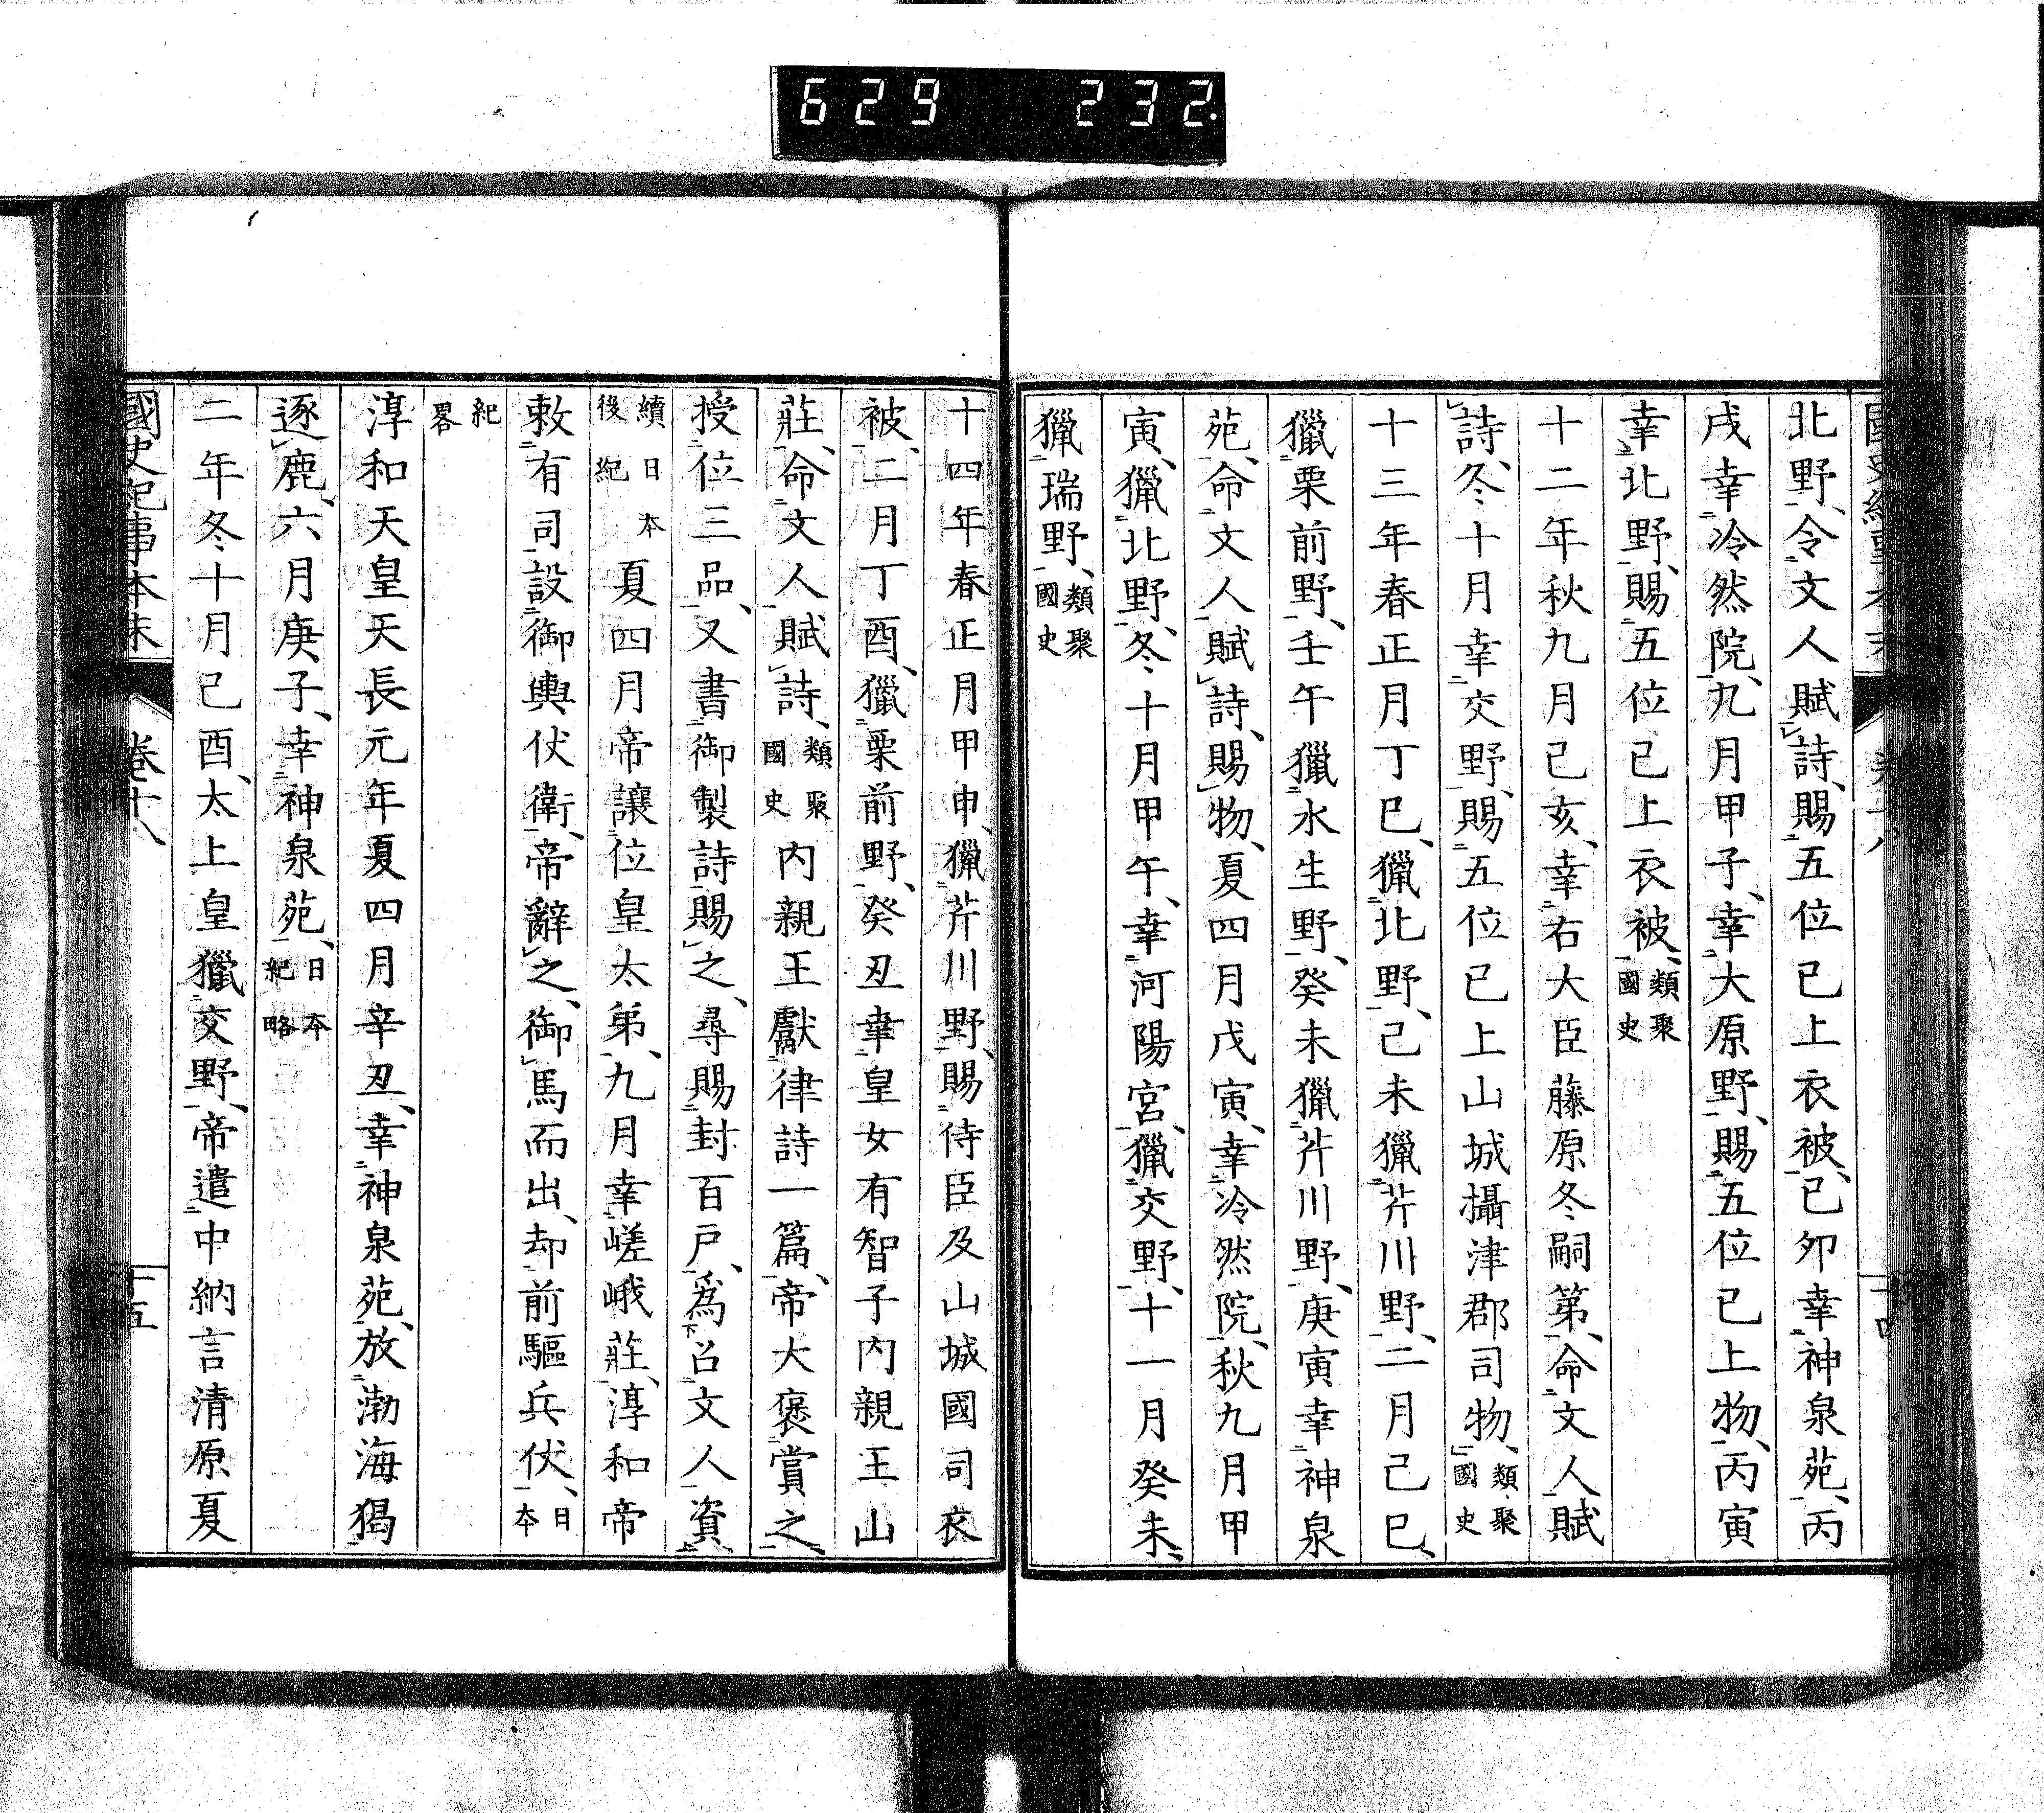 629 232.
北野、令文人賦詩、賜五位已上衣被、己卯幸神泉苑、丙
戌幸冷然院、九月甲子、幸大原野、賜五位已上物、丙寅
幸北野、賜五位已上衣被、類聚國史
十二年秋九月己亥、幸右大臣藤原冬嗣第、命文人賦
詩、冬十月幸交野、賜五位已上山城攝津郡司物、類聚國史
十三年春正月丁巳、獵北野、己未獵芹川野、二月己巳、
獵栗前野、壬午獵水生野、癸未獵芹川野、庚寅幸神泉
苑、命文人賦詩、賜物、夏四月戊寅、幸冷然院、秋九月甲
寅、獵北野、冬十月甲午、幸河陽宮、獵交野、十一月癸未、
獵瑞野、類聚國史
十四年春正月甲申、獵芹川野、賜侍臣及山城國司衣
被、二月丁酉、獵栗前野、癸丑幸皇女有智子內親王山
莊、命文人賦詩、類聚國史內親王獻律詩一篇、帝大褒賞之、
授位三品、又書御製詩賜之、尋賜封百戶、爲召文人資、
續日本後紀夏四月帝讓位皇太弟、九月幸嵯峨莊、淳和帝
敕有司設御輿伏衛、帝辭之、御馬而出、却前驅兵伏、日本
紀畧
淳和天皇天長元年夏四月辛丑、幸神泉苑、放渤海獦
逐鹿、六月庚子、幸神泉苑、日本紀略
二年冬十月己酉、太上皇獵交野、帝遣中納言清原夏
國史紀事本末 卷十八 十五